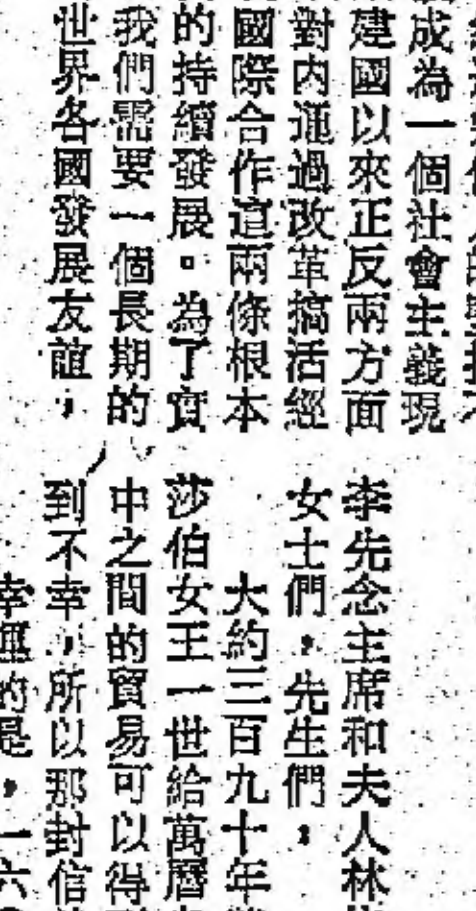 成為一個社會主義現
建國以來正反兩方面
對内通過改革搞活經
國際合作這兩條根本
的持續發展。為了實
我們需要一個長期的
世界各國發展友誼；
李先念主席和夫人林
女士們，先生們：
大約三百九十年
莎伯女王一世給萬曆
中之間的貿易可以得
到不幸，所以那封信
幸運的是，一六